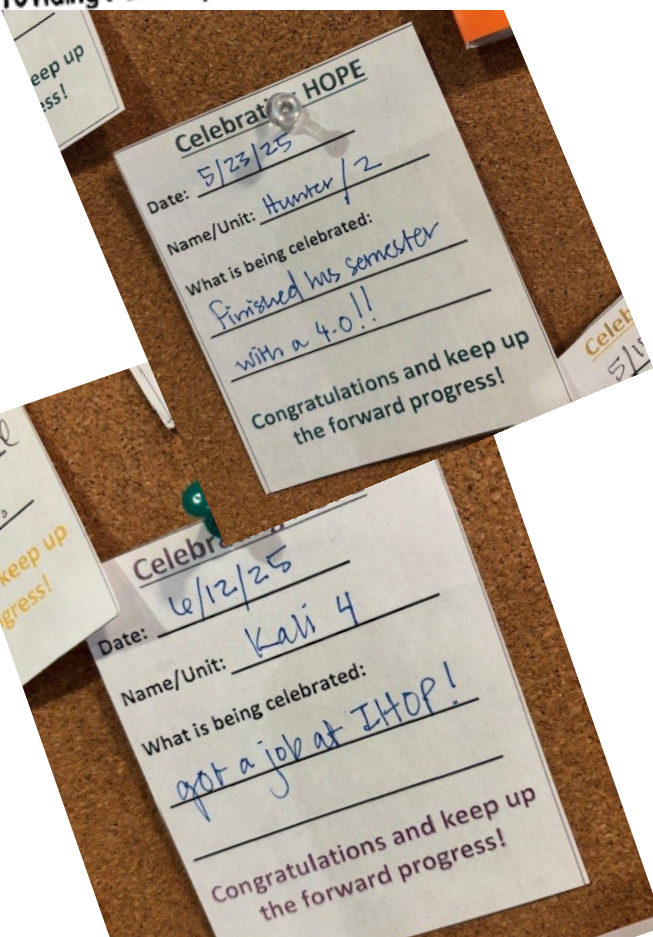 eep up
ess!
Celebrati HOPE
Date: 5/23/25
Name/Unit: Hunter / 2
What is being celebrated:
Finished his semester
with a 4.0!!
Congratulations and keep up
the forward progress!
Celeb
5/1
keep up
gress!
Celebra
Date: 6/12/25
Name/Unit: Kali 4
What is being celebrated:
got a job at IHOP!
Congratulations and keep up
the forward progress!